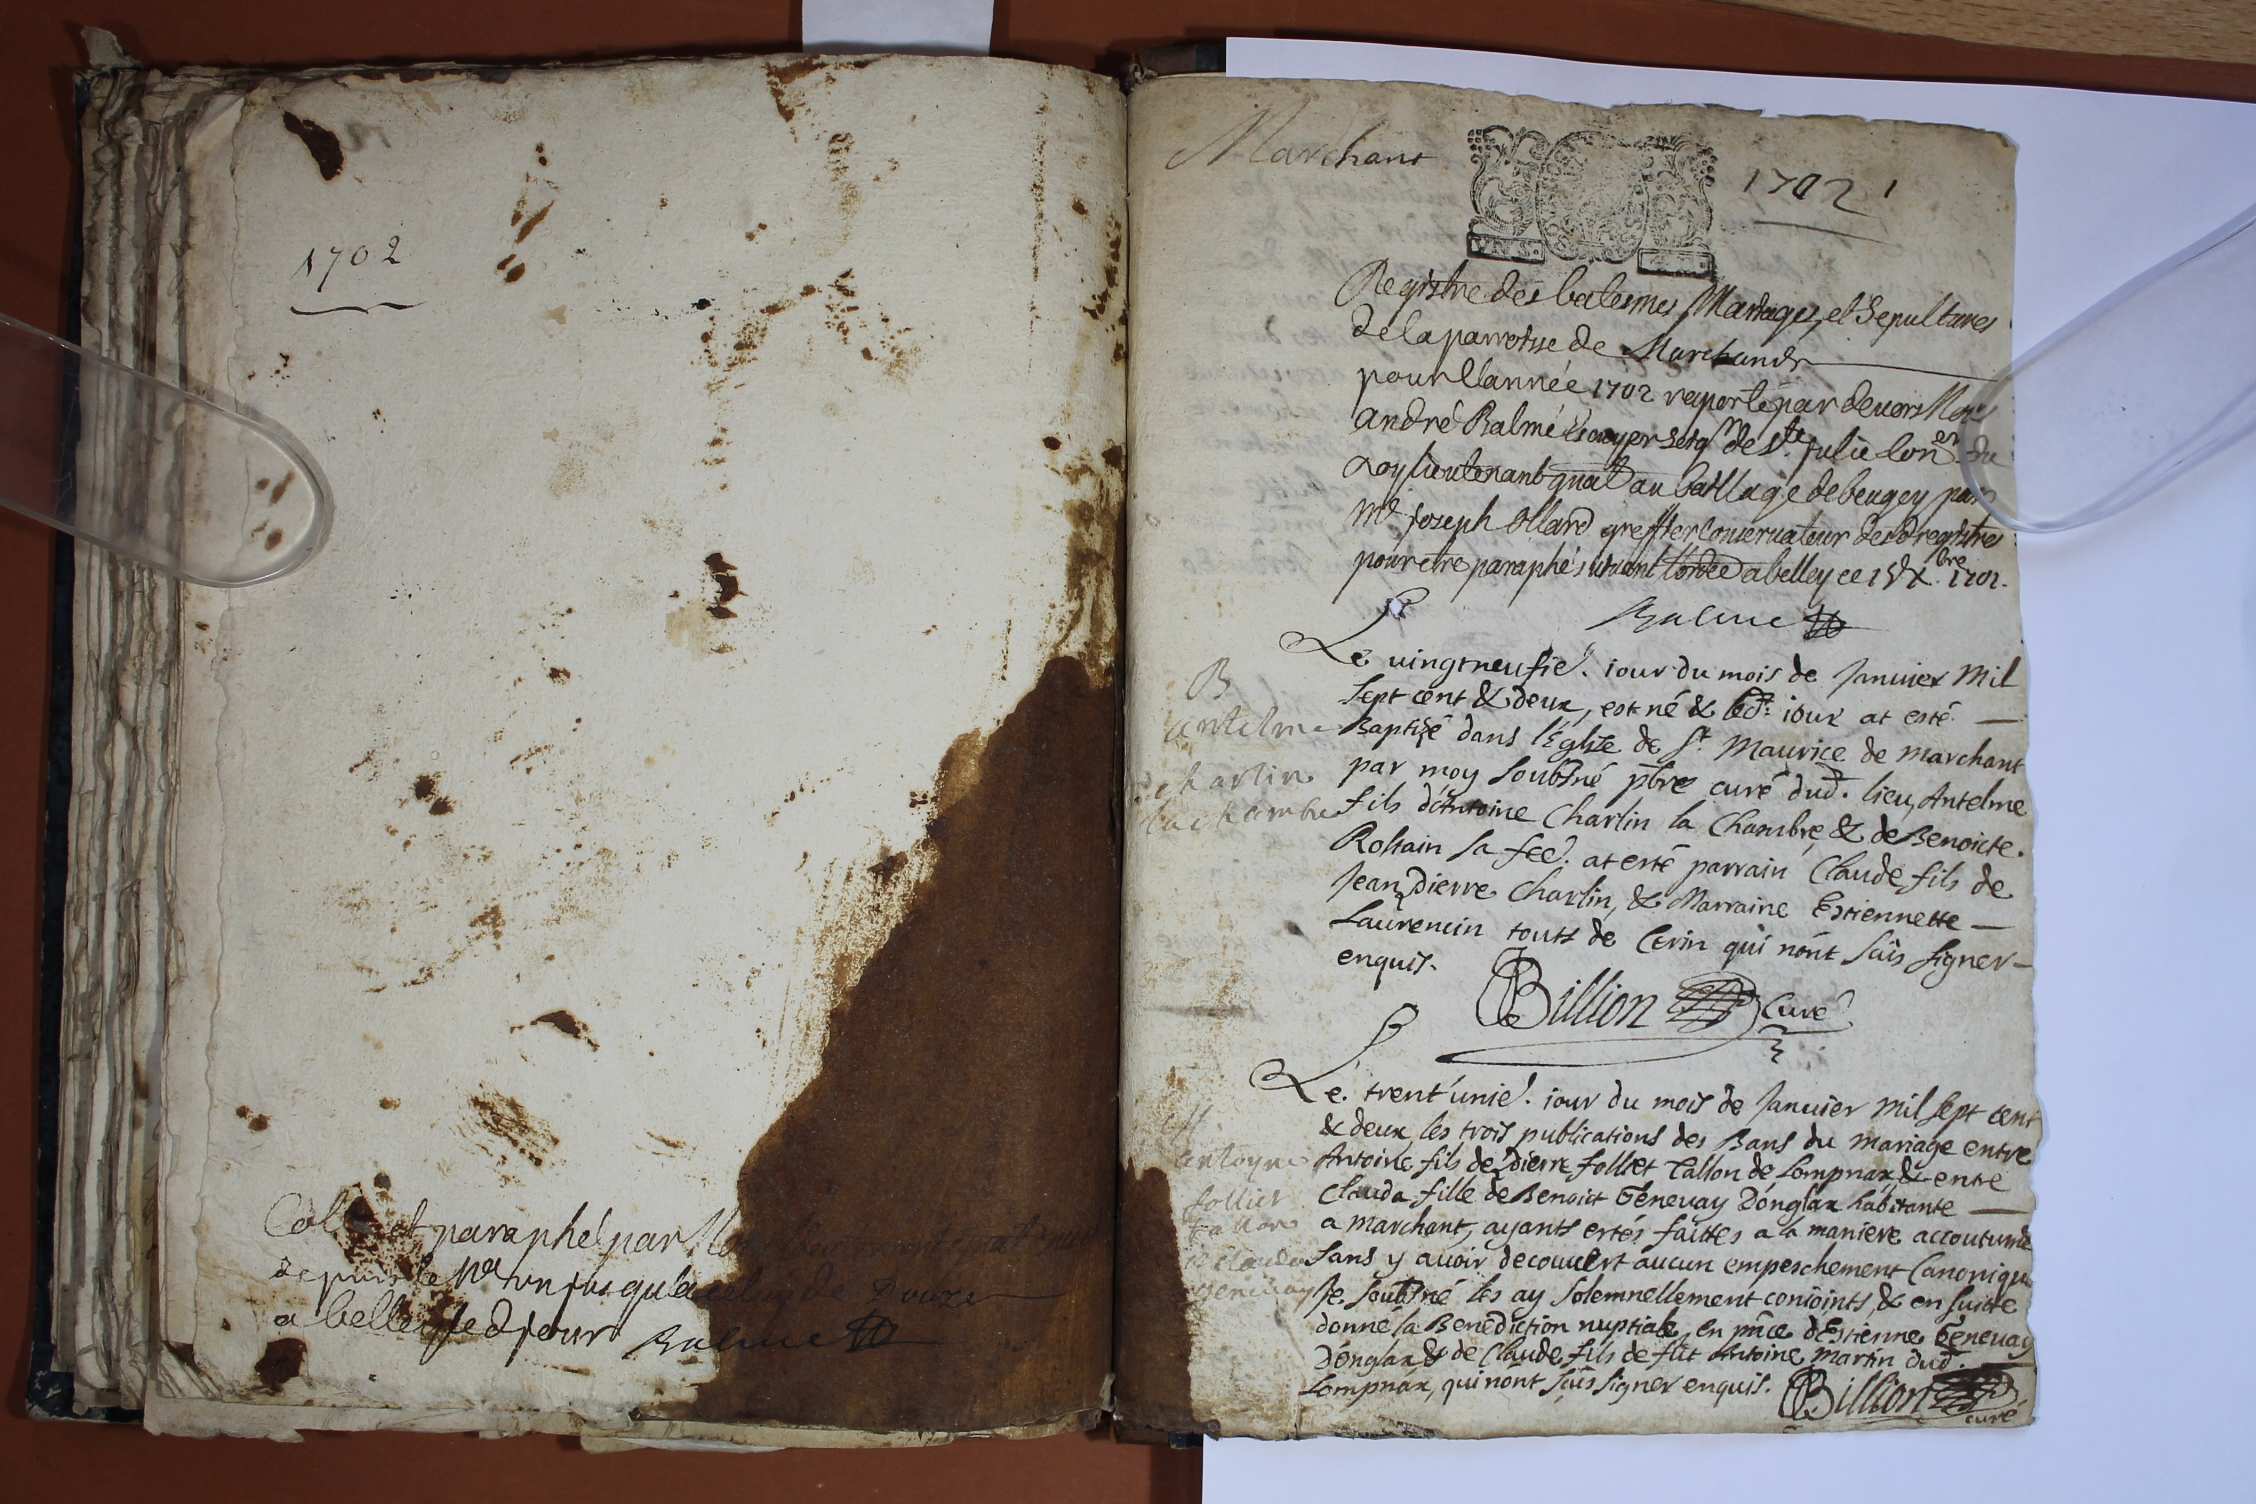 1702
Cotté et paraphé par Nous
depuis le p.er un jusqu'a celuy de Douze
a belley led jour Balme
Marchant
1702 1
VN S.
Registre des batesmes Mariages et Sepultures
de la parroisse de Marchand
pour l'année 1702 raporté par devers Nous
andré Balme Escuyer seigr de Ste Julie Coner du
Roy lieutenant gnal au baillage de beugey par
Me Joseph Ollard greffier conservateur desd registres
pour etre paraphé suivant l'ordce a belley ce 15 Xbre 1701.
Balme
Le vingtneufie. iour du mois de Janvier Mil
sept cent & deux, est né & led. iour at esté
Baptizé dans l'Eglise de St. Maurice de marchant
par moy soubsné pbre curé dud. lieu, Antelme
fils d'Antoine Charlin la Chambre, & de Benoicte
Rostain sa fee. at esté parrain Claude fils de
Jean Pierre Charlin, & Marraine Estiennette
Laurencin touts de Cerin qui n'ont sçus signer
enquis.
B
antelme
charlin
la chambre
Billion Curé
Le trent'unie. iour du mois de Janvier mil sept cent
& deux, les trois publications des Bans du mariage entre
Antoine fils de Pierre folliet Tallon de Lompnax, & entre
Clauda fille de Benoict Genevay D'onglax habitante
a marchant, ayants estés faittes a la maniere accoutumée
sans y avoir decouvert aucun empeschement Canonique
Je soubsné les ay solemnellement conioints, & en suitte
donné la Benediction nuptiale, en pñce d'Estienne Genevay
D'onglax & de Claude fils de fût Antoine martin dud.
Lompnax, qui n'ont sçus signer enquis. Billion
curé
M
antoyne
follier
tallon
& clauda
genevay